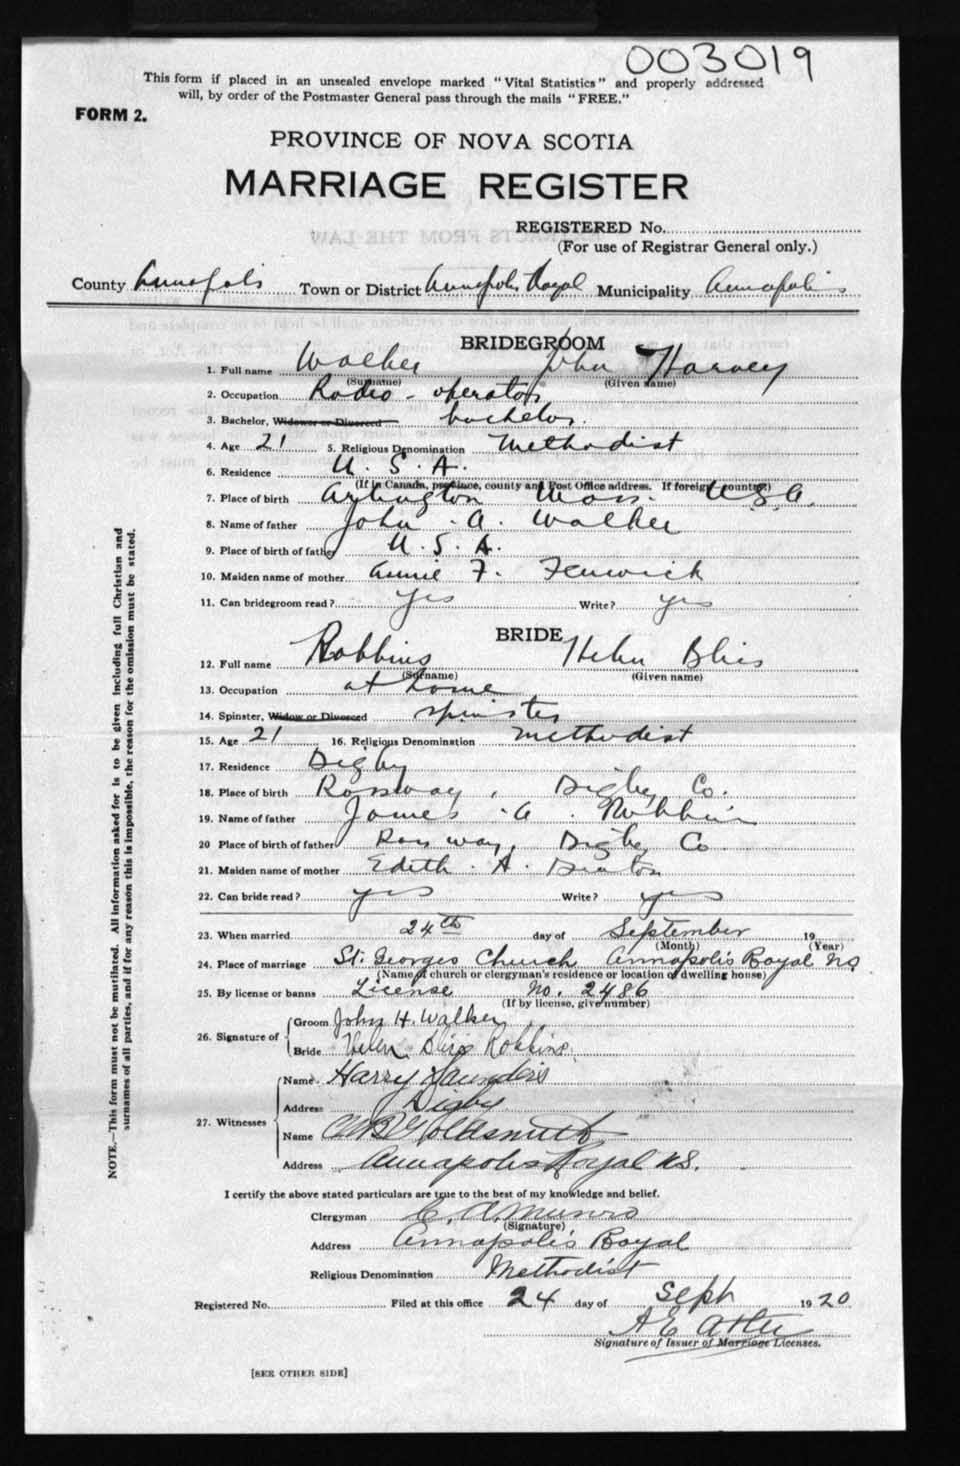 003019
This form if placed in an unsealed envelope marked "Vital Statistics" and properly addressed
will, by order of the Postmaster General pass through the mails "FREE."
FORM 2.
PROVINCE OF NOVA SCOTIA
MARRIAGE REGISTER
REGISTERED No.
(For use of Registrar General only.)
County Annapolis Town or District Annapolis Royal Municipality Annapolis
BRIDEGROOM
1. Full name Walker John Harvey
(Surname) (Given name)
2. Occupation Radio - operator
3. Bachelor, Widower or Divorced bachelor.
4. Age 21 5. Religious Denomination Methodist
6. Residence U. S. A.
(If in Canada, province, county and Post Office address. If foreign country)
7. Place of birth Arlington Mass. U.S.A.
8. Name of father John A. Walker
9. Place of birth of father U. S. A.
10. Maiden name of mother Annie F. Fenwick
11. Can bridegroom read? yes Write? yes
BRIDE
12. Full name Robbins Helen Bliss
(Surname) (Given name)
13. Occupation at home
14. Spinster, Widow or Divorced spinster
15. Age 21 16. Religious Denomination Methodist
17. Residence Digby
18. Place of birth Rossway, Digby Co.
19. Name of father James A. Robbins
20 Place of birth of father Rossway, Digby Co
21. Maiden name of mother Edith A.
22. Can bride read? yes Write? yes
23. When married 24th day of September 19
(Month) (Year)
24. Place of marriage St. Georges Church Annapolis Royal NS
(Name of church or clergyman's residence or location of dwelling house)
25. By license or banns License No. 2486
(If by license, give number)
26. Signature of Groom John H. Walker
Bride Helen Bliss Robbins.
27. Witnesses Name Harry Saunders
Address Digby
Name Goldsmith
Address Annapolis Royal N.S.
I certify the above stated particulars are true to the best of my knowledge and belief.
Clergyman C. A. Munro
(Signature)
Address Annapolis Royal
Religious Denomination Methodist
Registered No. Filed at this office 24 day of Sept 1920
A E
Signature of Issuer of Marriage Licenses.
[SEE OTHER SIDE]
NOTE.—This form must not be mutilated. All information asked for is to be given including full Christian and
surnames of all parties, and if for any reason this is impossible, the reason for the omission must be stated.